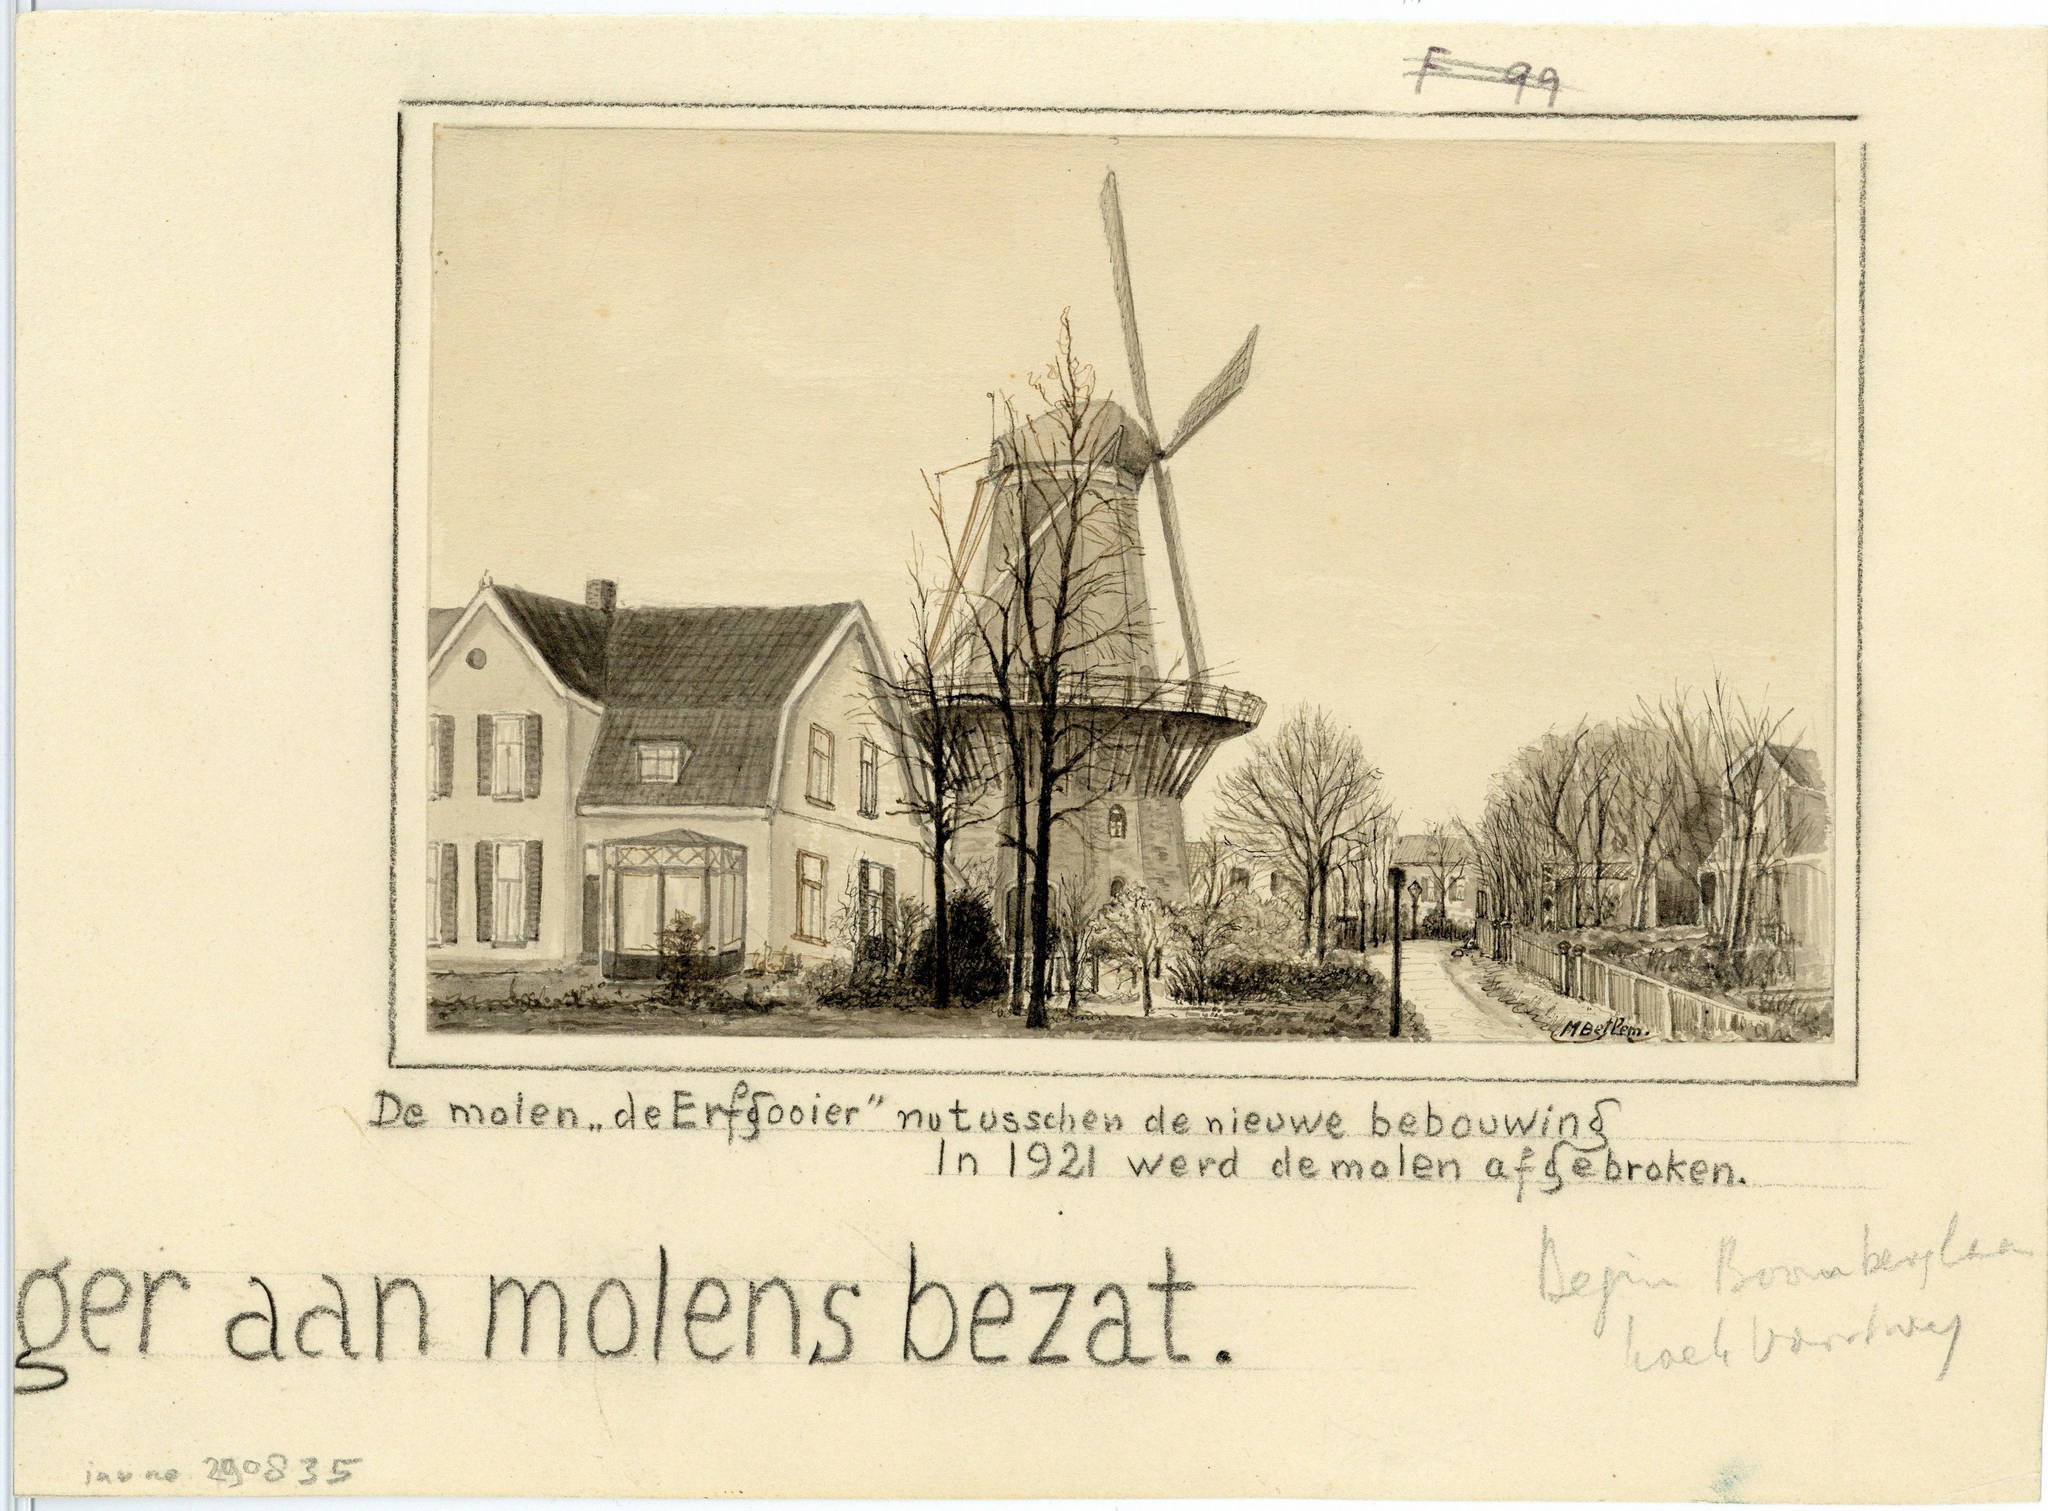 F 99
MBetlem.
De molen „de Erfgooier” nu tusschen de nieuwe bebouwing
In 1921 werd de molen afgebroken.
ger aan molens bezat.
Begin Boombergla
hoek
inv no 290835